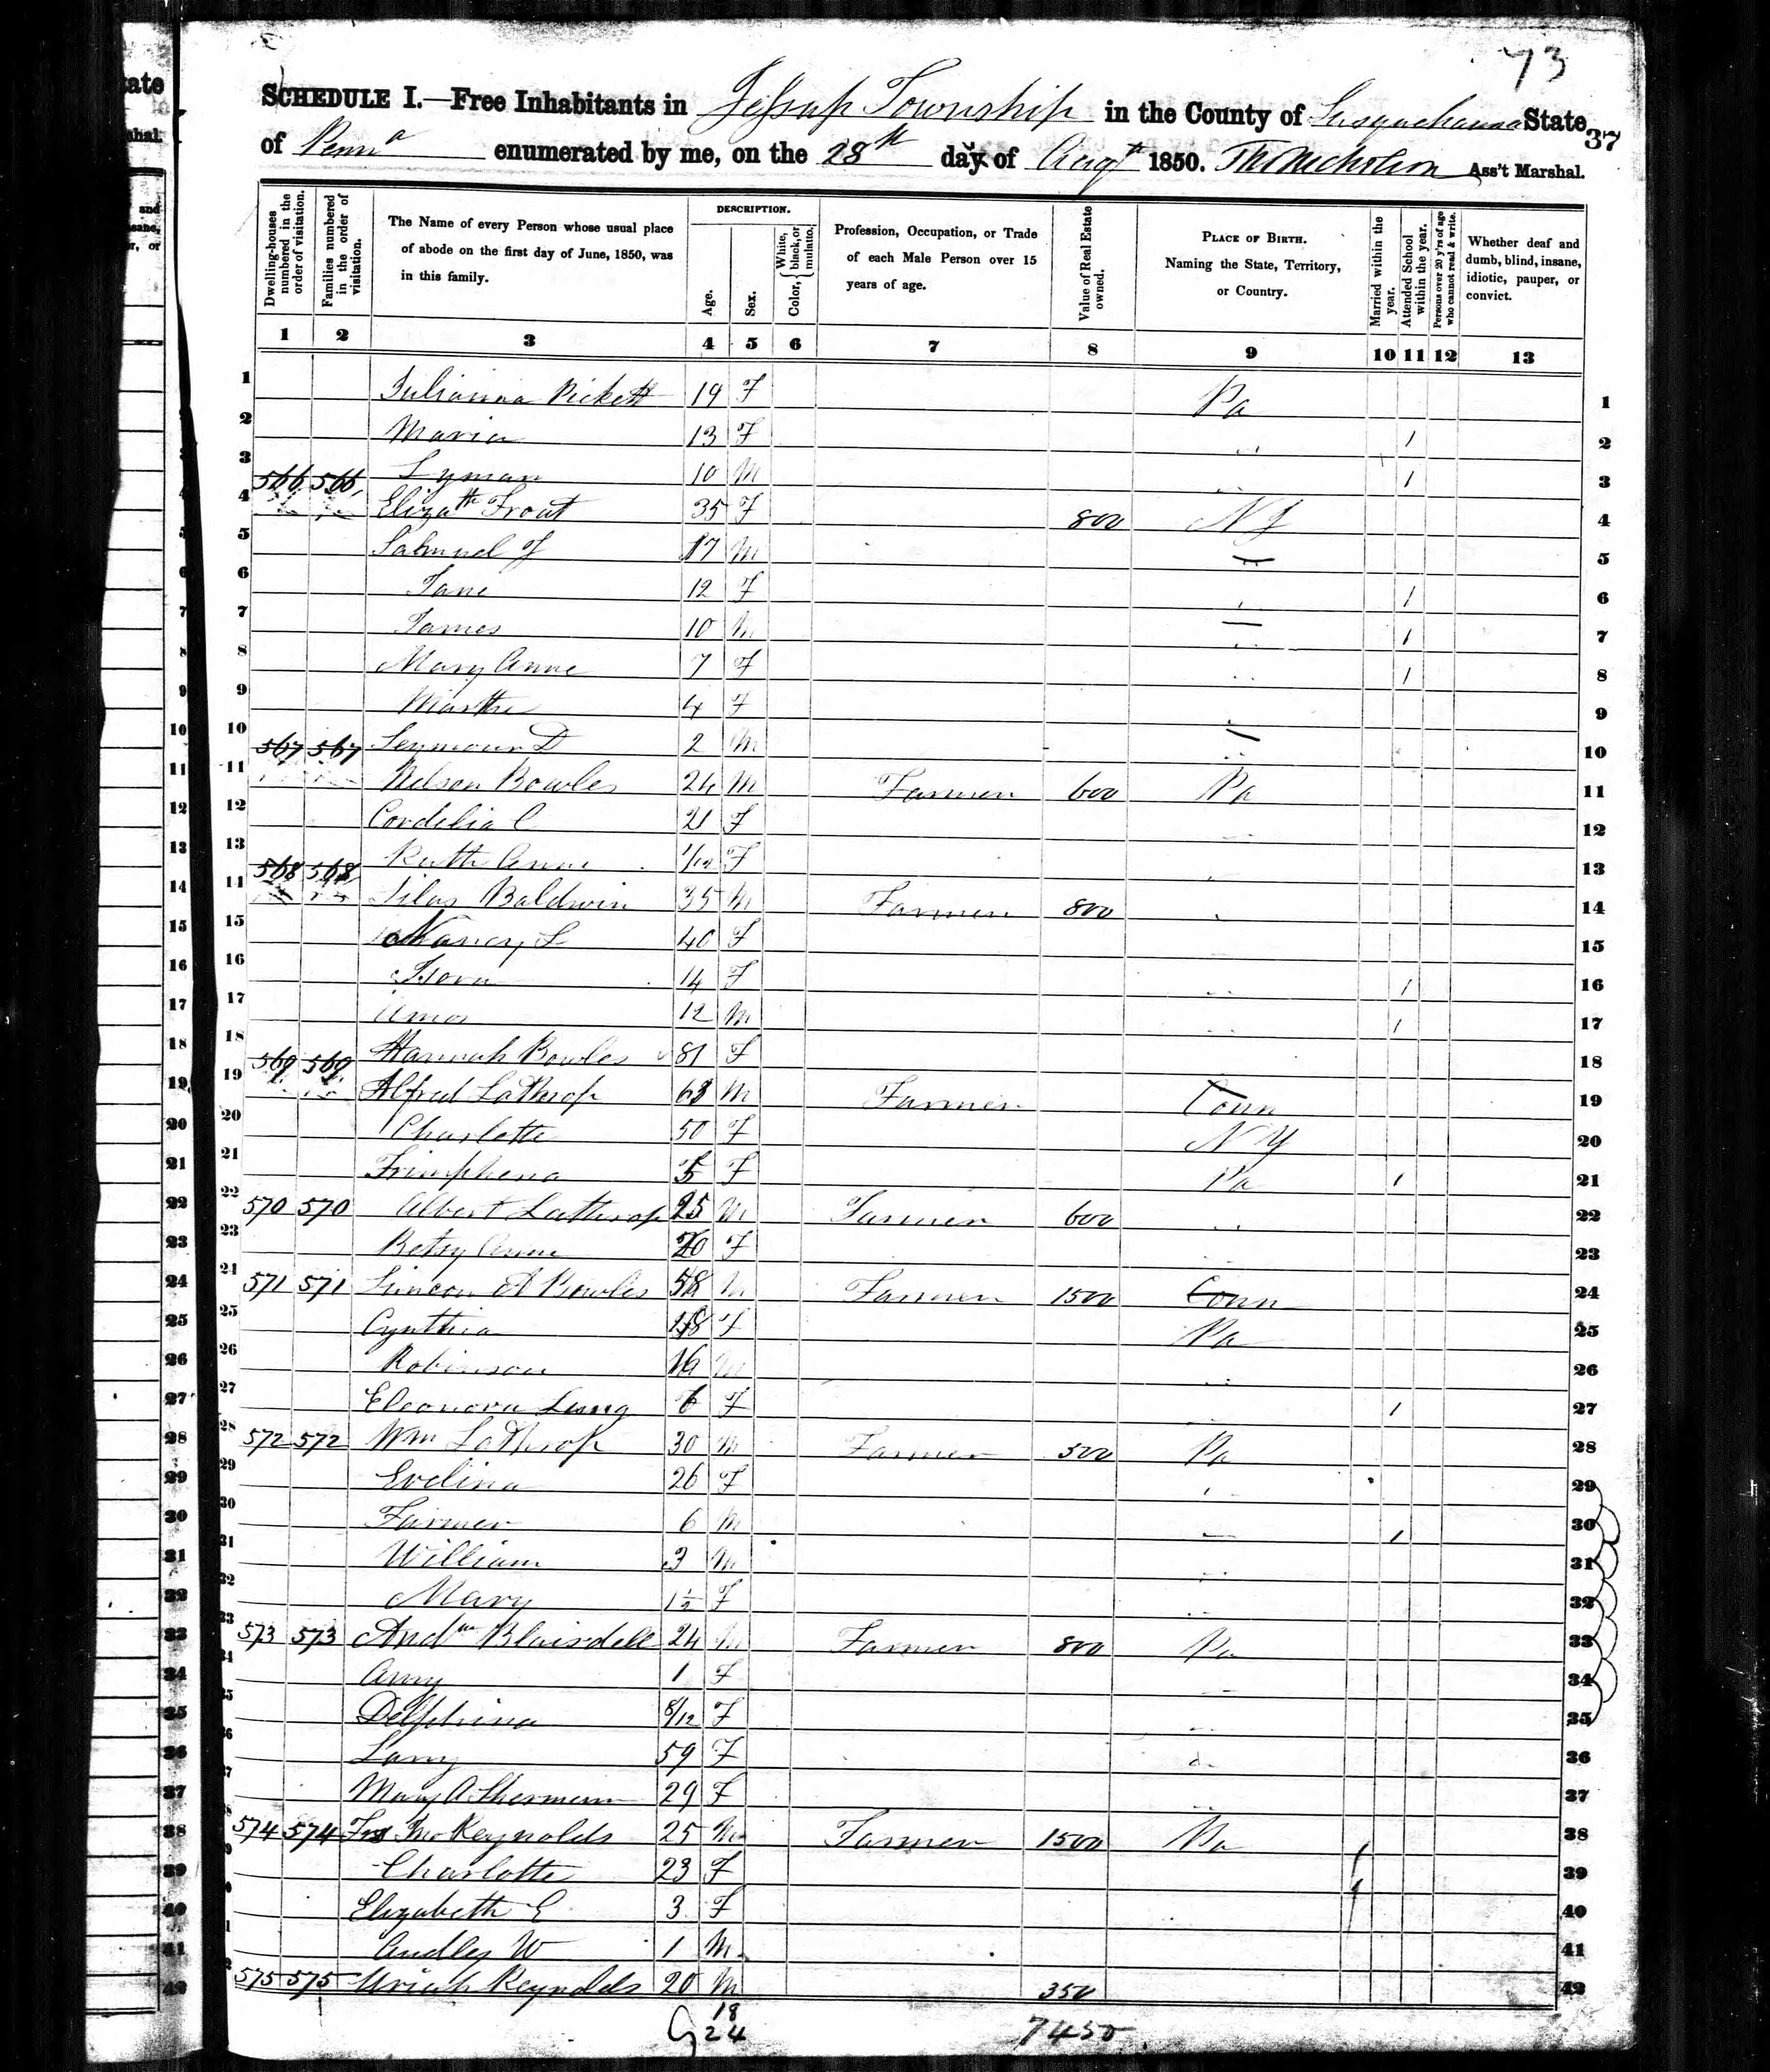 73
SCHEDULE I.—Free Inhabitants in Jessup Township in the County of Susquehanna State
37
of Penna enumerated by me, on the 28th day of Augt 1850. Ass't Marshal.
Dwelling-houses numbered in the order of visitation.
Families numbered in the order of visitation.
The Name of every Person whose usual place of abode on the first day of June, 1850, was in this family.
DESCRIPTION.
Age.
Sex.
Color, { White, black, or mulatto.
Profession, Occupation, or Trade of each Male Person over 15 years of age.
Value of Real Estate owned.
PLACE OF BIRTH. Naming the State, Territory, or Country.
Married within the year.
Attended School within the year.
Persons over 20 y'rs of age who cannot read & write.
Whether deaf and dumb, blind, insane, idiotic, pauper, or convict.
1 2 3 4 5 6 7 8 9 10 11 12 13
1 Julianna Pickett 19 F Pa 1
2 Maria 13 F " 1 2
3 Lyman 10 M " 1 3
566 566 4 Elizath Trout 35 F 800 NJ 4
5 Samuel J 17 M " 5
6 Jane 12 F " 1 6
7 James 10 M " 1 7
8 Mary Anne 7 F " 1 8
9 Martha 4 F " 9
10 Seymour D 2 M " 10
567 567 11 Nelson Bowles 24 M Farmer 600 Pa 11
12 Cordelia C 21 F " 12
13 Ruth Anne 1/12 F " 13
568 568 14 Silas Baldwin 35 M Farmer 800 " 14
15 Nancy L 40 F 15
16 14 F " 1 16
17 Amos 12 M " 1 17
18 Hannah Bowles 81 F 18
569 569 19 Alfred Lathrop 63 M Farmer Conn 19
20 Charlotte 50 F NY 20
21 Trimphena 5 F Pa 1 21
570 570 22 Albert Lathrop 25 M Farmer 600 " 22
23 Betsy Anne 20 F 23
571 571 24 A Bowles 58 M Farmer 1500 Conn 24
25 Cynthia 48 F Pa 25
26 Robinson 16 M " 26
27 Eleonora 6 F 1 27
572 572 28 Wm Lathrop 30 M Farmer 500 Pa 28
29 Evelina 26 F " 29
30 Farmer 6 M " 1 30
31 William 3 M " 31
32 Mary 1½ F " 32
573 573 33 Andw Blaisdell 24 M Farmer 800 Pa 33
34 Amy 1 F " 34
35 Delphina 8/12 F " 35
36 59 F " 36
37 Mary A Sherman 29 F " 37
574 574 Jno Reynolds 25 M Farmer 1500 Pa 38
Charlotte 23 F 39
Elizabeth E 3 F 40
Audley W 1 M 41
575 575 Uriah Reynolds 20 M 350 42
18
24
7450